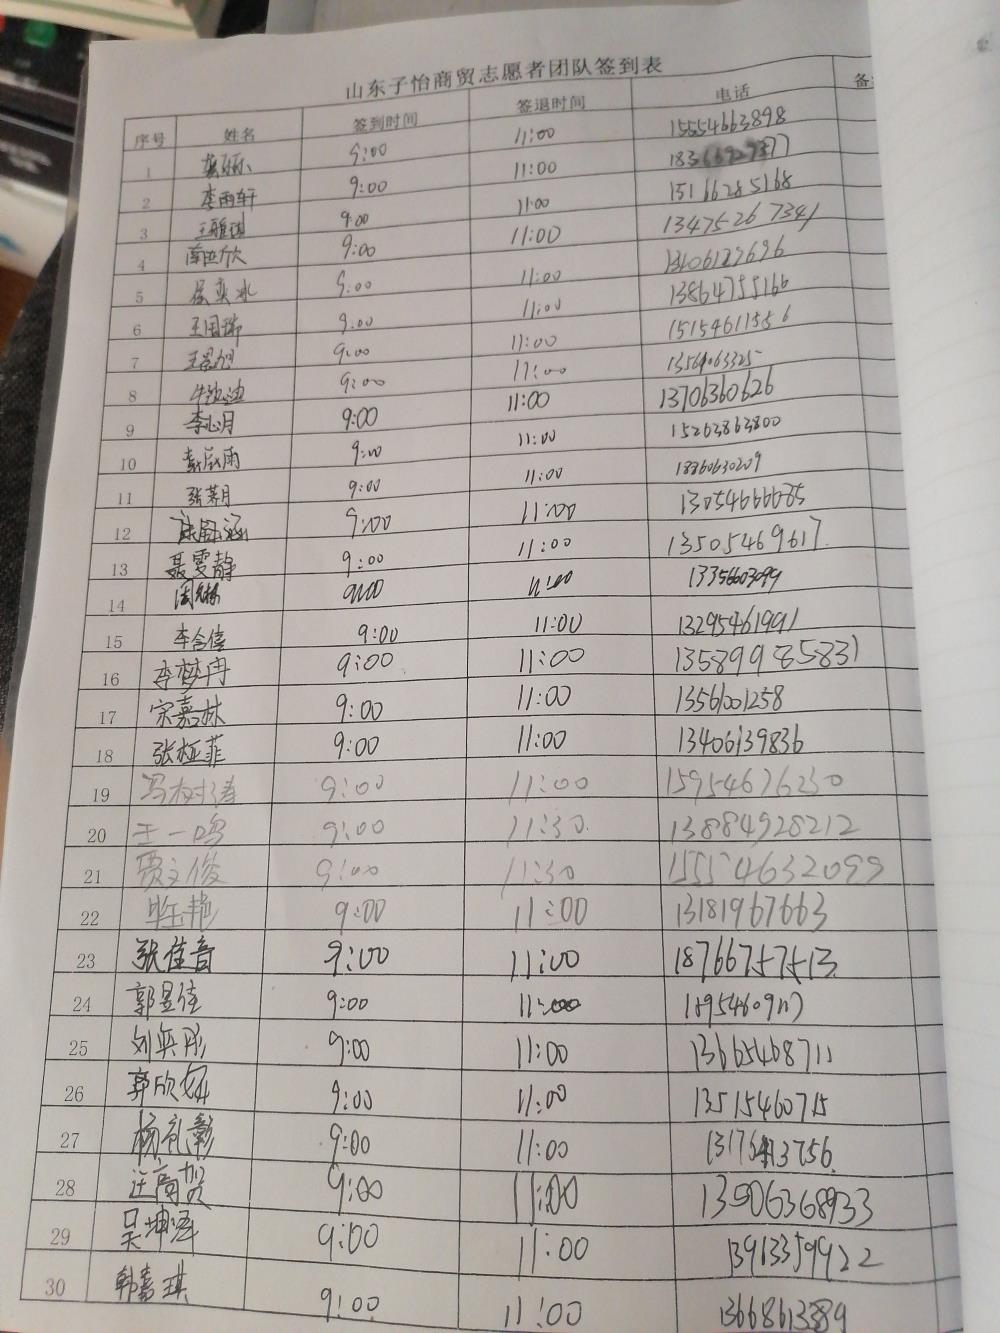 山东子怡商贸志愿者团队签到表
序号 姓名 签到时间 签退时间 电话 备
1 9:00 11:00 15554663898
2 李雨轩 9:00 11:00
3 王雅琪 9:00 11:00 15166285168
4 南亚欣 9:00 11:00 13475267341
5 侯奕冰 9:00 11:00
6 王国瑞 9:00 11:00 13864755166
7 王昱旭 9:00 11:00 15154611556
8 9:00 11:00
9 李心月 9:00 11:00 13706360626
10 9:00 11:00 15263863800
11 9:00 11:00 18860630209
12 9:00 11:00 13054666685
13 聂雯静 9:00 11:00 13505469617
14 9:00 11:00 13356603099
15 李合信 9:00 11:00 13295461991
16 李梦冉 9:00 11:00 13589985831
17 宋嘉林 9:00 11:00 13561001258
18 张桠菲 9:00 11:00 13406139836
19 冯树涛 9:00 11:00 15954676230
20 王一鸣 9:00 11:30 13884928212
21 贾文俊 9:00 11:30 15554632099
22 9:00 11:00 13181967663
23 张佳音 9:00 11:00 18766757513
24 郭昱佳 9:00 11:00
25 刘奕彤 9:00 11:00 13665468711
26 郭欣 9:00 11:00 13515460715
27 杨礼彰 9:00 11:00
28 汪高贺 9:00 11:00 13506368933
29 吴坤泽 9:00 11:00 13913359922
30 韩嘉琪 9:00 11:00 13668613889